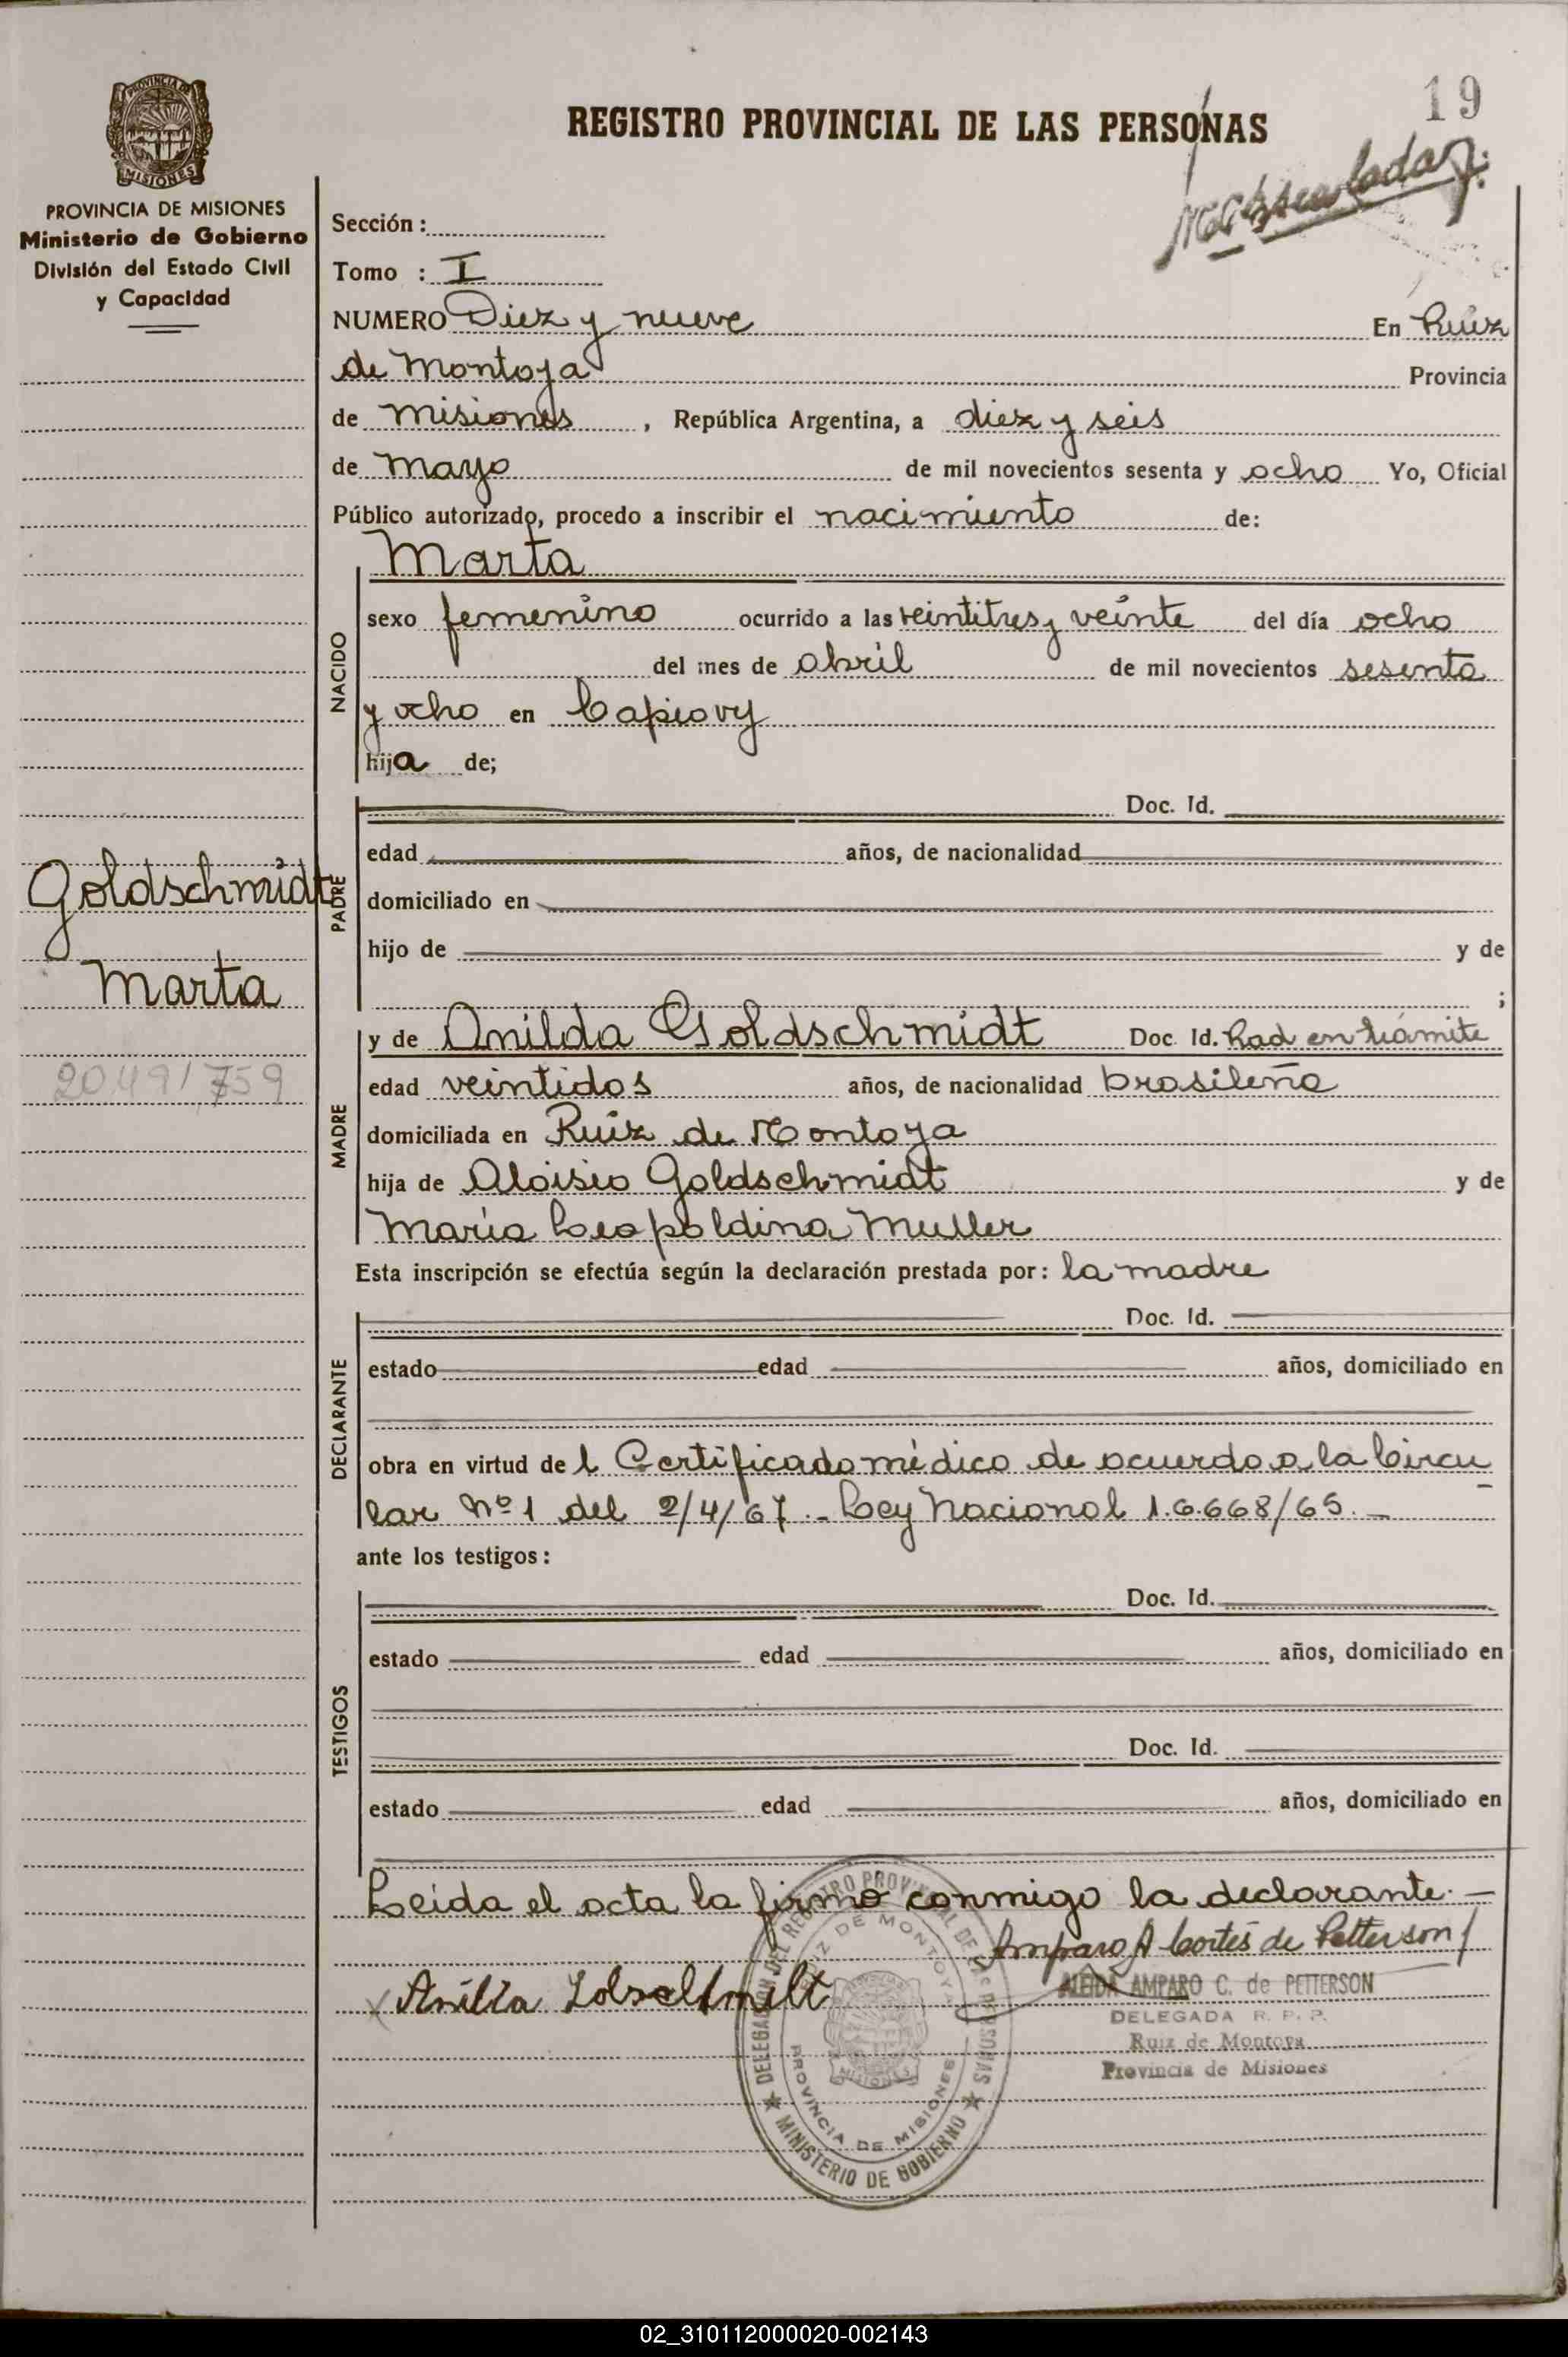 19
REGISTRO PROVINCIAL DE LAS PERSONAS
PROVINCIA DE MISIONES
Ministerio de Gobierno
División del Estado Civil
y Capacidad
Sección :
Tomo : I
NUMERO Diez y nueve En Ruiz
de Montoya Provincia
de Misiones , República Argentina, a diez y seis
de Mayo de mil novecientos sesenta y ocho Yo, Oficial
Público autorizado, procedo a inscribir el nacimiento de:
NACIDO
Marta
sexo femenino ocurrido a las veintitres y veinte del día ocho
del mes de abril de mil novecientos sesenta
y ocho en Capiovy
hija de;
PADRE
Doc. Id.
edad años, de nacionalidad
domiciliado en
hijo de y de
;
Goldschmidt
Marta
20.491.759
MADRE
y de Anilda Goldschmidt Doc. Id. Rad en trámite
edad veintidos años, de nacionalidad brasileña
domiciliada en Ruiz de Montoya
hija de Aloisio Goldschmidt y de
María Leopoldina Muller
Esta inscripción se efectúa según la declaración prestada por: la madre
DECLARANTE
Doc. Id.
estado edad años, domiciliado en
obra en virtud de l Certificado médico de acuerdo a la Circu
lar Nº 1 del 2/4/67.- Ley Nacional 1.6.668/65.-
ante los testigos:
TESTIGOS
Doc. Id.
estado edad años, domiciliado en
Doc. Id.
estado edad años, domiciliado en
Leida el acta la firma conmigo la declarante.-
Amparo A Cortés de Petterson
ALEIDA AMPARO C. de PETTERSON
DELEGADA R. P. P.
Ruiz de Montoya
Provincia de Misiones
DELEGACION DEL REGISTRO PROVINCIAL DE LAS PERSONAS
RUIZ DE MONTOYA
PROVINCIA DE MISIONES
MINISTERIO DE GOBIERNO
02_310112000020-002143